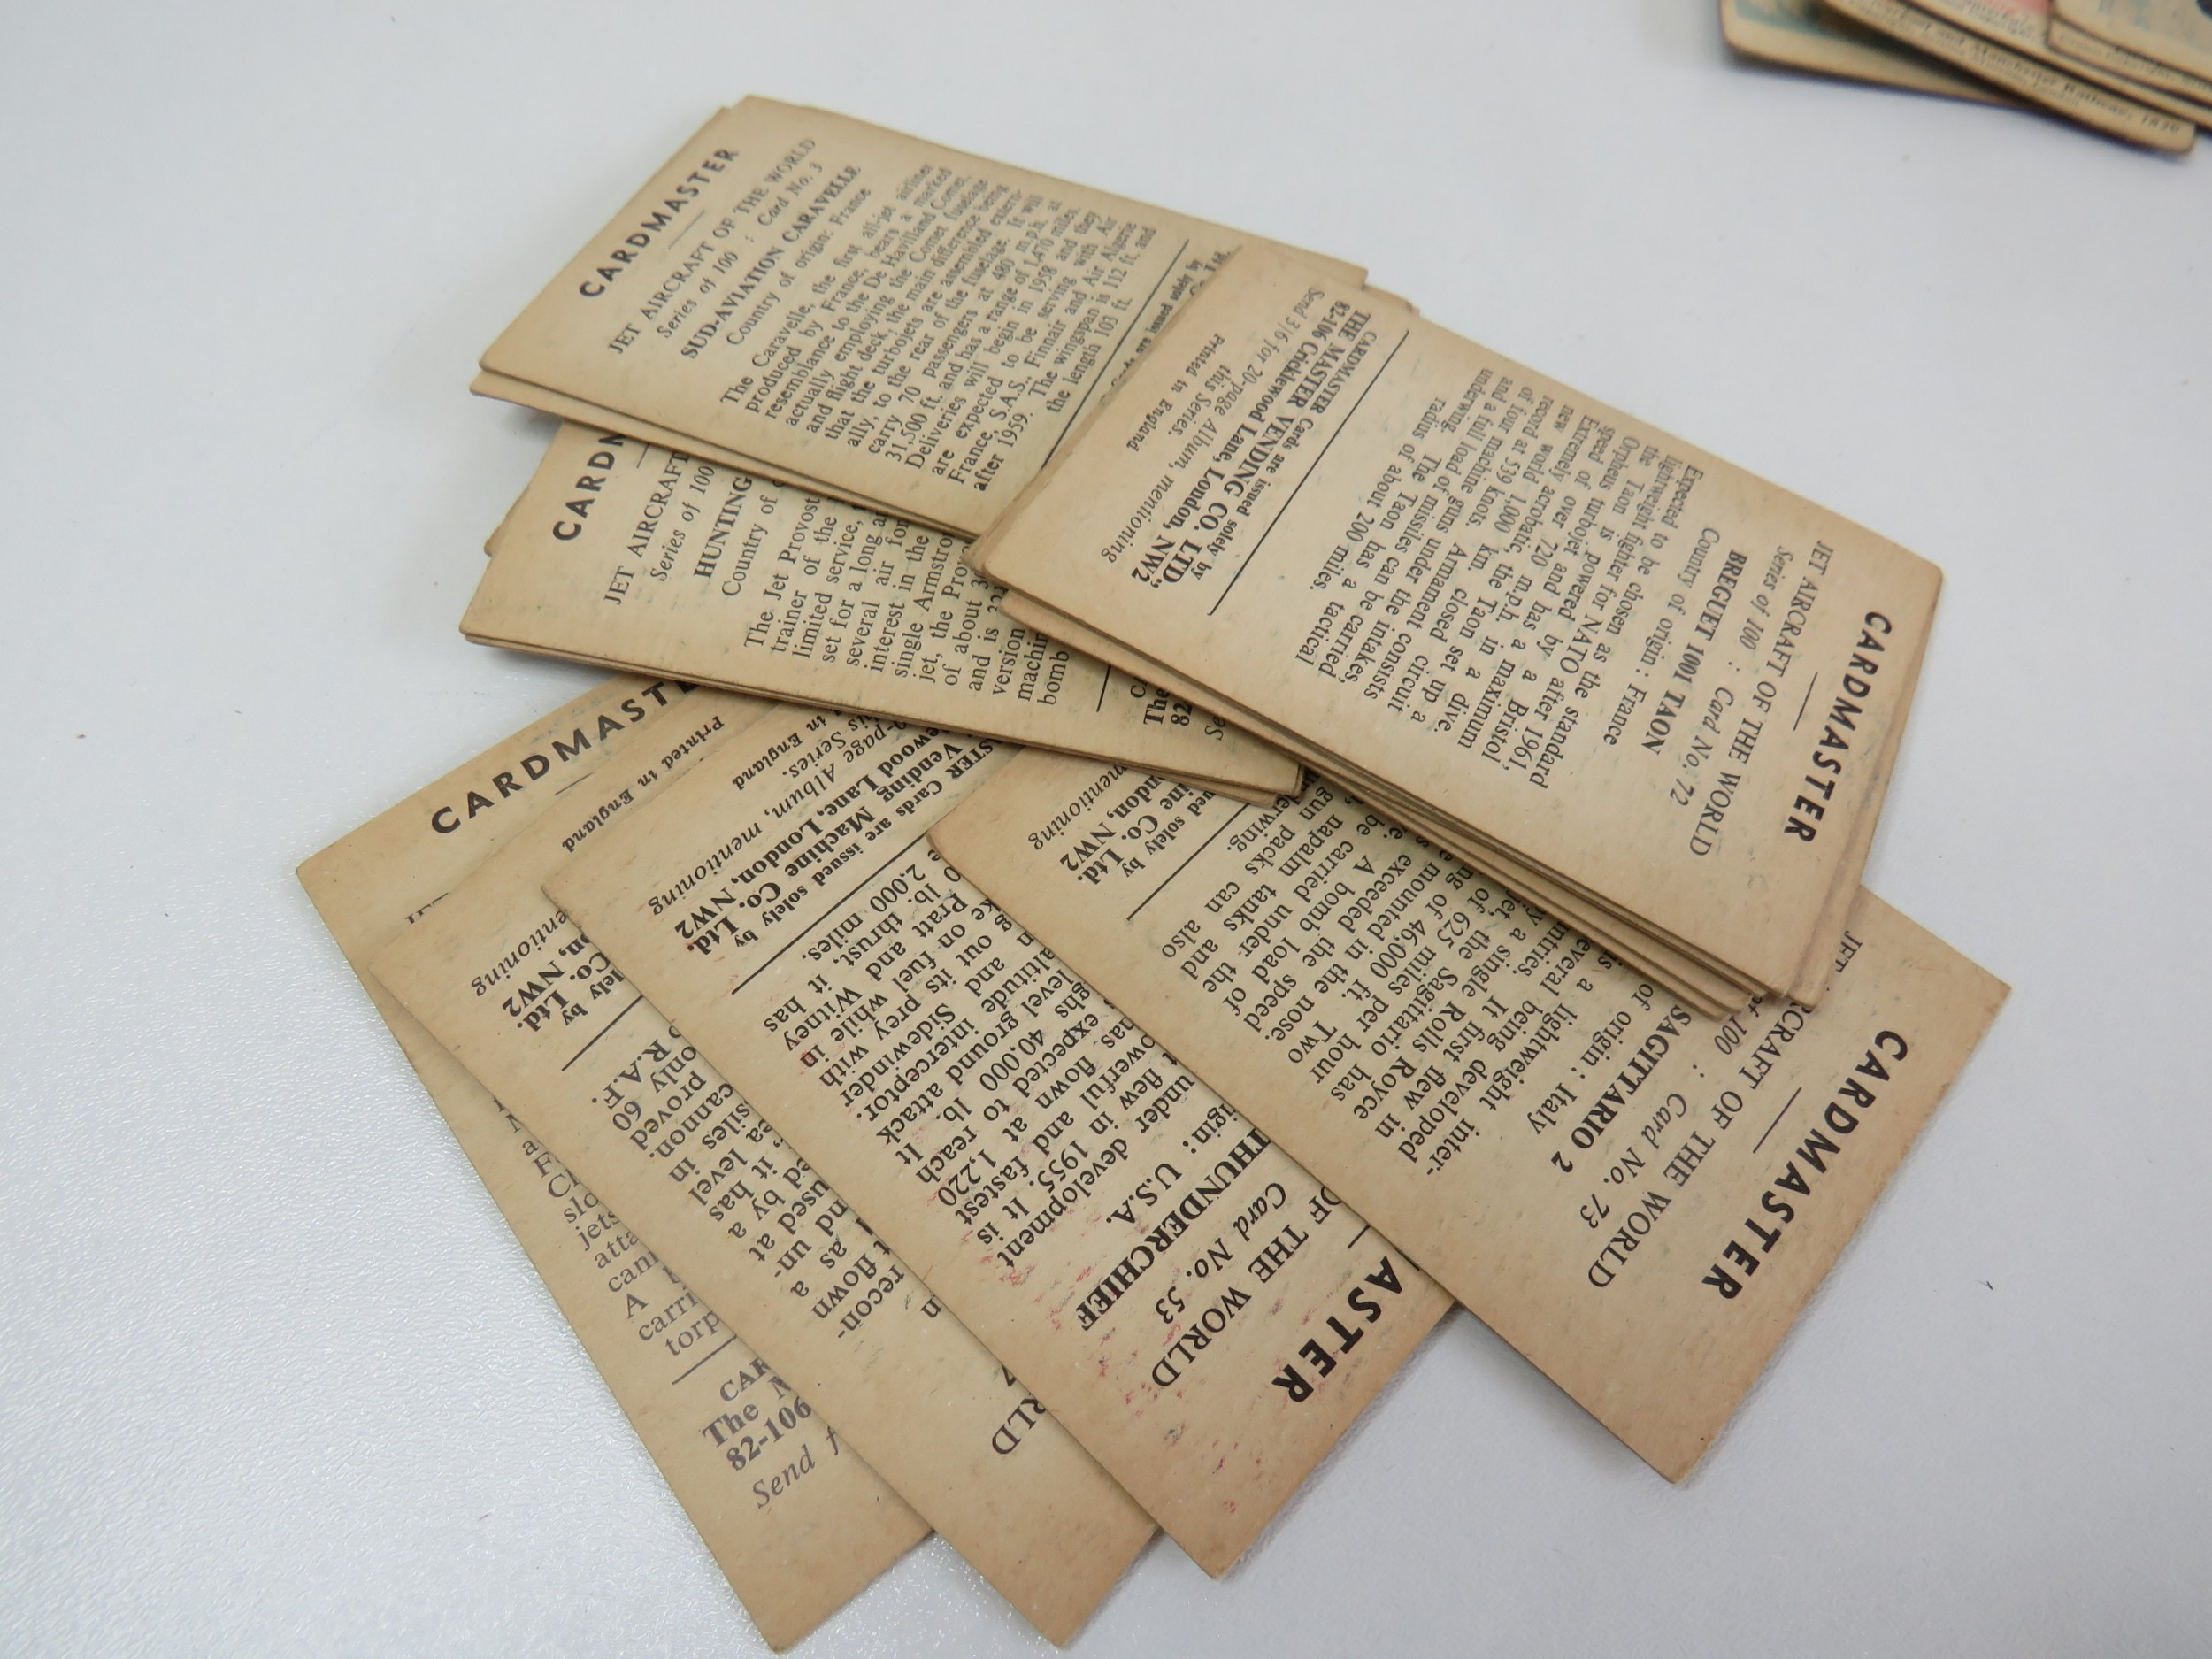 CARDMASTER
JET AIRCRAFT OF THE WORLD
Series of 100 : Card No. 3
SUD-AVIATION CARAVELLE
Country of origin: France
The Caravelle, the first all-jet airliner
produced by France, bears a marked
resemblance to the De Havilland Comet,
actually employing the Comet fuselage
and flight deck, the main difference being
that the turbojets are assembled extern-
ally, to the rear of the fuselage. It will
carry 70 passengers at 480 m.p.h. at
31,500 ft. and has a range of 1,470 miles.
Deliveries will begin in 1958 and they
are expected to be serving with Air
France, S.A.S., Finnair and Air Algerie
after 1959. The wingspan is 112 ft. and
the length 103 ft.
Cards are issued solely by
CARDMASTER
JET AIRCRAFT OF THE WORLD
Series of 100 : Card No. 72
BREGUET 1001 TAON
Country of origin : France
Expected to be chosen as the standard
lightweight fighter for NATO after 1961,
the Taon is powered by a Bristol
Orpheus turbojet and has a maximum
speed of over 720 m.p.h. in a dive.
Extremely acrobatic, the Taon set up a
new world 1,000 km closed circuit
record at 539 knots. Armament consists
of four machine guns under the intakes,
and a full load of missiles can be carried
underwing. The Taon has a tactical
radius of about 200 miles.
CARDMASTER Cards are issued solely by
THE MASTER VENDING CO. LTD.,
82-106 Cricklewood Lane, London, NW2
Send 3/6 for 20-page Album, mentioning
this Series.
Printed in England
CARDM
JET AIRCRAFT
Series of 100
HUNTING
Country of
The Jet Provost
trainer of the
limited service,
set for a long
several air for
interest in the
single Armstro
jet, the Prov
of about 3
and is
version
machin
bomb
The
82
CARDMASTER
JET
CRAFT OF THE WORLD
of 100 : Card No. 73
SAGITTARIO 2
of origin : Italy
is a lightweight inter-
everal being developed
ntries. It first flew in
y a single Rolls Royce
jet, the Sagittario has
of 625 miles per hour
ng of 46,000 ft. Two
mounted in the nose.
exceeded the speed
A bomb load of
be carried under the
napalm tanks and
gun packs can also
derwing.
ued solely by
ine Co. Ltd.
ndon, NW2
mentioning
ASTER
OF THE WORLD
Card No. 53
THUNDERCHIEF
igin : U.S.A.
under development
t flew in 1955. It is
owerful and fastest
has flown at 1,220
expected to reach
ghs 40,000 lb. It
level ground attack
altitude interceptor.
and Sidewinder
ng out its prey with
ke on fuel while in
Pratt and Witney
0 lb. thrust, it has
2,000 miles.
STER Cards are issued solely by
Vending Machine Co. Ltd.
ewood Lane, London, NW2
-page Album, mentioning
his Series.
d in England
RLD
recon-
t flown
nd as a
used un-
ed at
it by a
sea level
it has
siles in
cannon.
proved.
only 60
R.A.F.
lely by
Co. Ltd.
on, NW2
entioning
Printed in England
CARDMASTE
slo
jets
atta
can
A
carri
torp
CAR
The M
82-106
Send f
and Manchester Railway, 1839